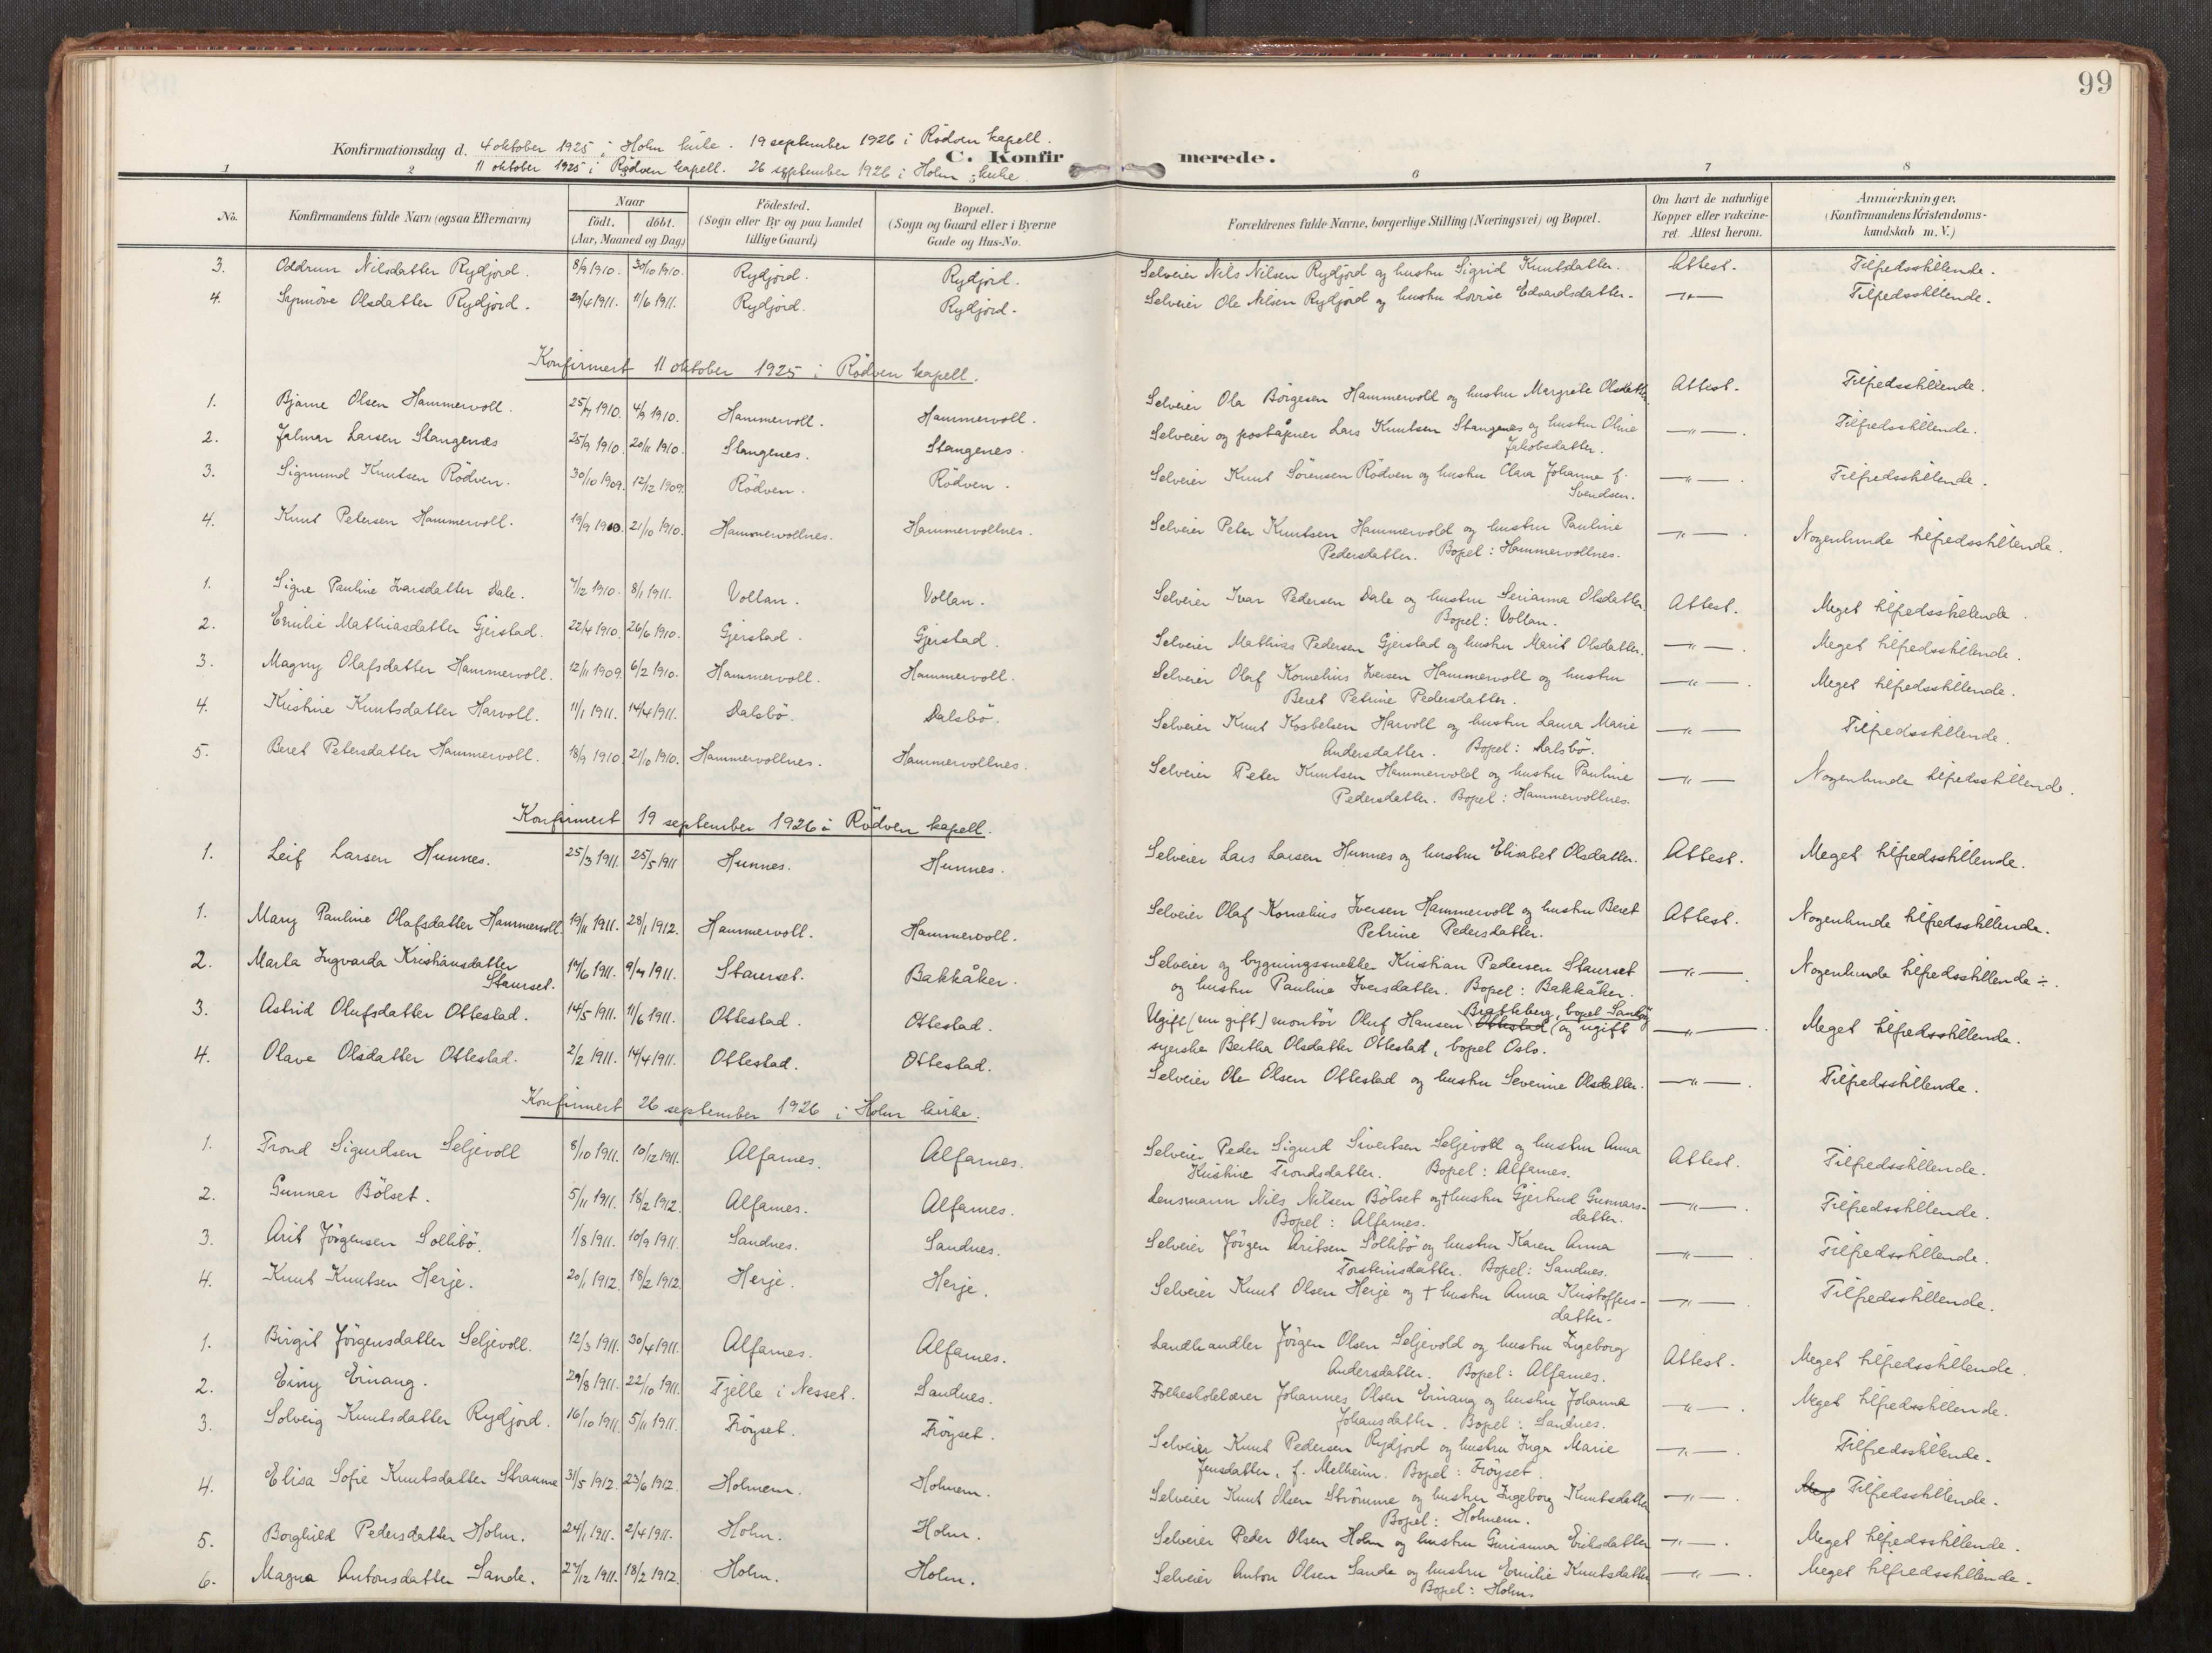 99
Konfirmationsdag d. 4 oktober 1925 i Holm kirke. 19 september 1926 i Rødven kapell.
11 oktober 1925 i Rødven kapell. 26 september 1926 i Holm kirke
C. Konfirmerede.
1 2 3 6 7 8
No. Konfirmandens fulde Navn (ogsaa Efternavn) Naar födt. döbt. (Aar, Maaned og Dag) Födested. (Sogn eller By og paa Landet tillige Gaard) Bopæl. (Sogn og Gaard eller i Byerne Gade og Hus-No. Forældrenes fulde Navne, borgerlige Stilling (Næringsvei) og Bopæl. Om havt de naturlige Kopper eller vakcineret. Attest herom. Anmærkninger. (Konfirmandens Kristendomskundskab m. V.)
3. Oddrun Nilsdatter Rydjord. 8/9 1910. 30/10 1910. Rydjord. Rydjord. Selveier Nils Nilsen Rydjord og hustru Sigrid Knutsdatter. Attest. Tilfredsstillende.
4. Synnöve Olsdatter Rydjord. 29/4 1911. 11/6 1911. Rydjord. Rydjord. Selveier Ole Nilsen Rydjord og hustru Lovise Edvardsdatter. —"— Tilfredsstillende.
Konfirmert 11 oktober 1925 i Rödven kapell.
1. Bjarne Olsen Hammervoll. 25/7 1910. 4/9 1910. Hammervoll. Hammervoll. Selveier Ola Börgesen Hammervold og hustru Margrete Olsdatter. Attest. Tilfredsstillende.
2. Jalmar Larsen Stangenes 25/9 1910. 20/11 1910. Stangenes. Stangenes. Selveier og poståpner Lars Knutsen Stangenes og hustru Oline —"—. Tilfredsstillende.
Jakobsdatter.
3. Sigmund Knutsen Rödven. 30/10 1909. 12/12 1909. Rödven. Rödven. Selveier Knut Sörensen Rödven og hustru Clara Johanne f. —"—. Tilfredsstillende.
Svendsen.
4. Knut Petersen Hammervoll. 19/9 1910. 21/10 1910. Hammervollnes. Hammervollnes. Selveier Peter Knutsen Hammervold og hustru Pauline —"—. Nogenlunde tilfredsstillende.
Pedersdatter. Bopel: Hammervollnes.
1. Signe Pauline Ivarsdatter Dale. 7/12 1910. 8/1 1911. Vollan. Vollan. Selveier Ivar Pedersen Dale og hustru Serianna Olsdatter. Attest. Meget tilfredsstillende.
Bopel: Vollan.
2. Emilie Mathiasdatter Gjerstad. 22/4 1910. 26/6 1910. Gjerstad. Gjerstad. Selveier Mathias Pedersen Gjerstad og hustru Marit Olsdatter. —"—. Meget tilfredsstillende.
3. Magny Olafsdatter Hammervoll. 12/11 1909. 6/2 1910. Hammervoll. Hammervoll. Selveier Olaf Kornelius Iversen Hammervoll og hustru —"—. Meget tilfredsstillende.
Beret Petrine Pedersdatter.
4. Kristine Knutsdatter Harvoll. 11/1 1911. 14/4 1911. Dalsbö. Dalsbö. Selveier Knut Hosbelsen Harvoll og hustru Laura Marie —"— Tilfredsstillende.
Andersdatter. Bopel: Dalsbö.
5. Beret Petersdatter Hammervoll. 18/9 1910 21/10 1910. Hammervollnes. Hammervollnes. Selveier Peter Knutsen Hammervold og hustru Pauline —"— Nogenlunde tilfredsstillende.
Pedersdatter. Bopel: Hammervollnes.
Konfirmert 19 september 1926 i Rödven kapell.
1. Leif Larsen Hunnes. 25/3 1911. 25/5 1911 Hunnes. Hunnes. Selveier Lars Larsen Hunnes og hustru Elisabet Olsdatter. Attest. Meget tilfredsstillende.
1. Mary Pauline Olafsdatter Hammervoll 19/11 1911. 28/1 1912. Hammervoll. Hammervoll. Selveier Olaf Kornelius Iversen Hammervoll og hustru Beret Attest. Nogenlunde tilfredsstillende.
Petrine Pedersdatter.
2. Marta Ingvarda Kristiansdatter 17/6 1911. 9/7 1911. Staurset. Bakkåker. Selveier og bygningssnekker Kristian Pedersen Staurset —"—. Nogenlunde tilfredsstillende ÷.
Staurset. og hustru Pauline Iversdatter. Bopel: Bakkåker.
3. Astrid Olufsdatter Ottestad. 14/5 1911. 11/6 1911. Ottestad. Ottestad. Ugift (nu gift) montör Oluf Hansen Ottestad Brattberg, bopel (og ugift —"—. Meget tilfredsstillende.
syerske Bertha Olsdatter Ottestad, bopel Oslo.
4. Olave Olsdatter Ottestad. 2/2 1911. 14/4 1911. Ottestad. Ottestad. Selveier Ole Olsen Ottestad og hustru Severine Olsdatter. —"—. Tilfredsstillende.
Konfirmert 26 september 1926 i Holm kirke.
1. Trond Sigurdsen Seljevoll 8/10 1911. 10/12 1911. Alfarnes. Alfarnes. Selveier Peder Sigurd Sivertsen Seljevoll og hustru Anna Attest. Tilfredsstillende.
Kristine Trondsdatter. Bopel: Alfarnes.
2. Gunnar Bölset. 5/11 1911. 18/2 1912. Alfarnes. Alfarnes. Lensmann Nils Nilsen Bölset og † hustru Gjertrud Gunnars- —"—. Tilfredsstillende.
Bopel: Alfarnes. datter.
3. Arit Jörgensen Sollibö. 1/8 1911. 10/9 1911. Sandnes. Sandnes. Selveier Jörgen Aritsen Sollibö og hustru Karen Anna —"— Tilfredsstillende.
Torsteinsdatter. Bopel: Sandnes.
4. Knut Knutsen Herje. 20/1 1912. 18/2 1912 Herje. Herje. Selveier Knut Olsen Herje og † hustru Anna Kristoffers- —"—. Tilfredsstillende.
datter.
1. Birgit Jörgensdatter Seljevoll. 12/3 1911. 30/4 1911. Alfarnes. Alfarnes. Landhandler Jörgen Olsen Seljevold og hustru Ingeborg Attest. Meget tilfredsstillende.
Andersdatter. Bopel: Alfarnes.
2. Einy Einang. 29/8 1911. 22/10 1911. Tjelle i Nesset. Sandnes. Folkeskolelærer Johannes Olsen Einang og hustru Johanna —"—. Meget tilfredsstillende.
Johansdatter. Bopel: Sandnes.
3. Solveig Knutsdatter Rydjord. 16/10 1911. 5/11 1911. Fröyset. Fröyset. Selveier Knut Pedersen Rydjord og hustru Inga Marie —"—. Tilfredsstillende.
Jensdatter, f. Melheim. Bopel: Fröyset.
4. Elisa Sofie Knutsdatter Straumme 31/5 1912. 23/6 1912. Holmem. Holmem. Selveier Knut Olsen Strömme og hustru Ingeborg Knutsdatter —"—. Meg Tilfredsstillende.
Bopel: Holmem.
5. Borghild Pedersdatter Holm. 24/1 1911. 2/4 1911. Holm. Holm. Selveier Peder Olsen Holm og hustru Gurianna Eriksdatter —"—. Meget tilfredsstillende.
6. Magna Antonsdatter Sande. 27/12 1911. 18/2 1912. Holm. Holm. Selveier Anton Olsen Sande og hustru Emilie Knutsdatter —"—. Meget tilfredsstillende.
Bopel: Holm.